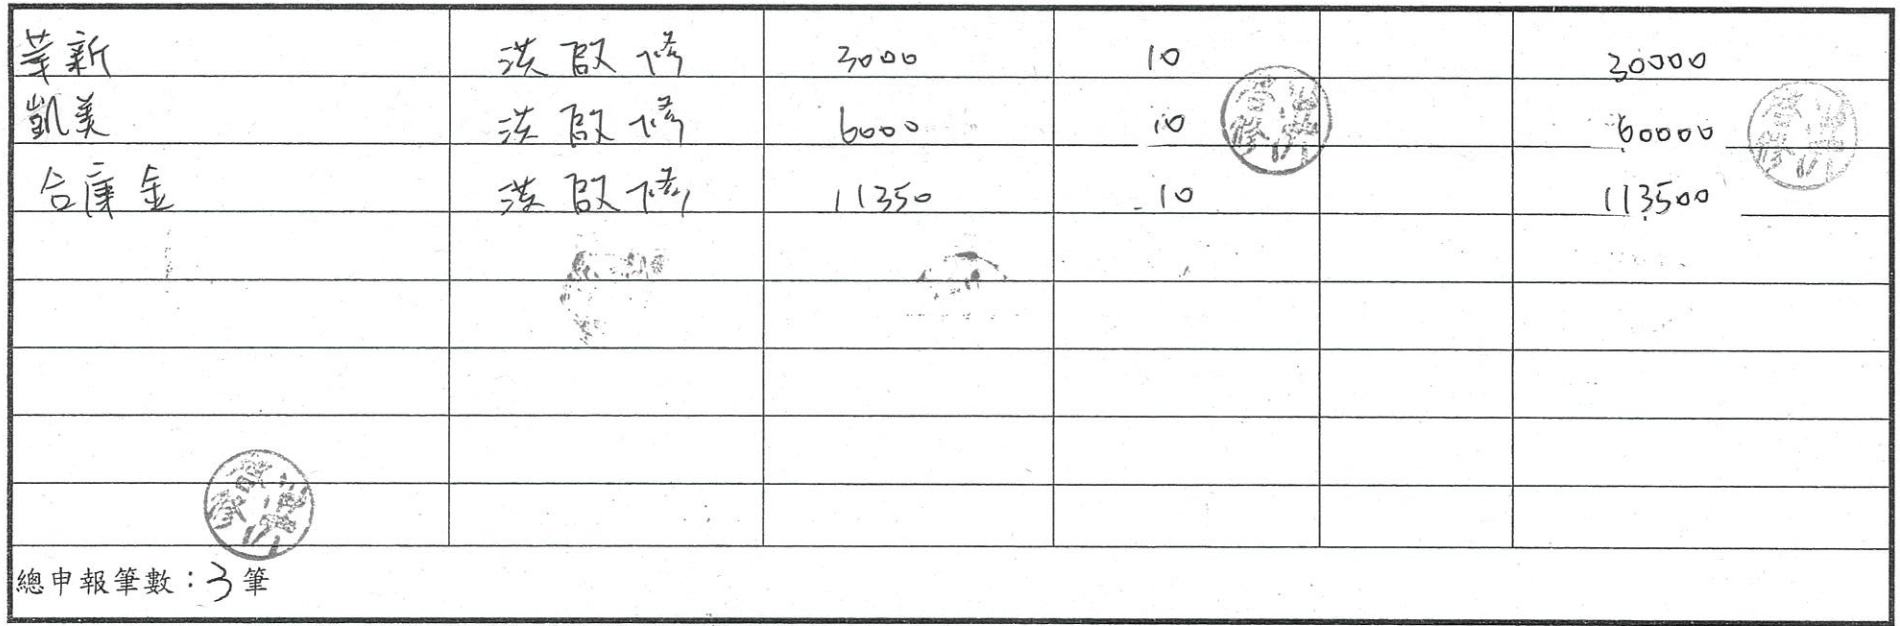 華新 洪啟修 3000 10 30000
凱美 洪啟修 6000 10 60000
合庫金 洪啟修 11350 10 113500
總申報筆數：3筆